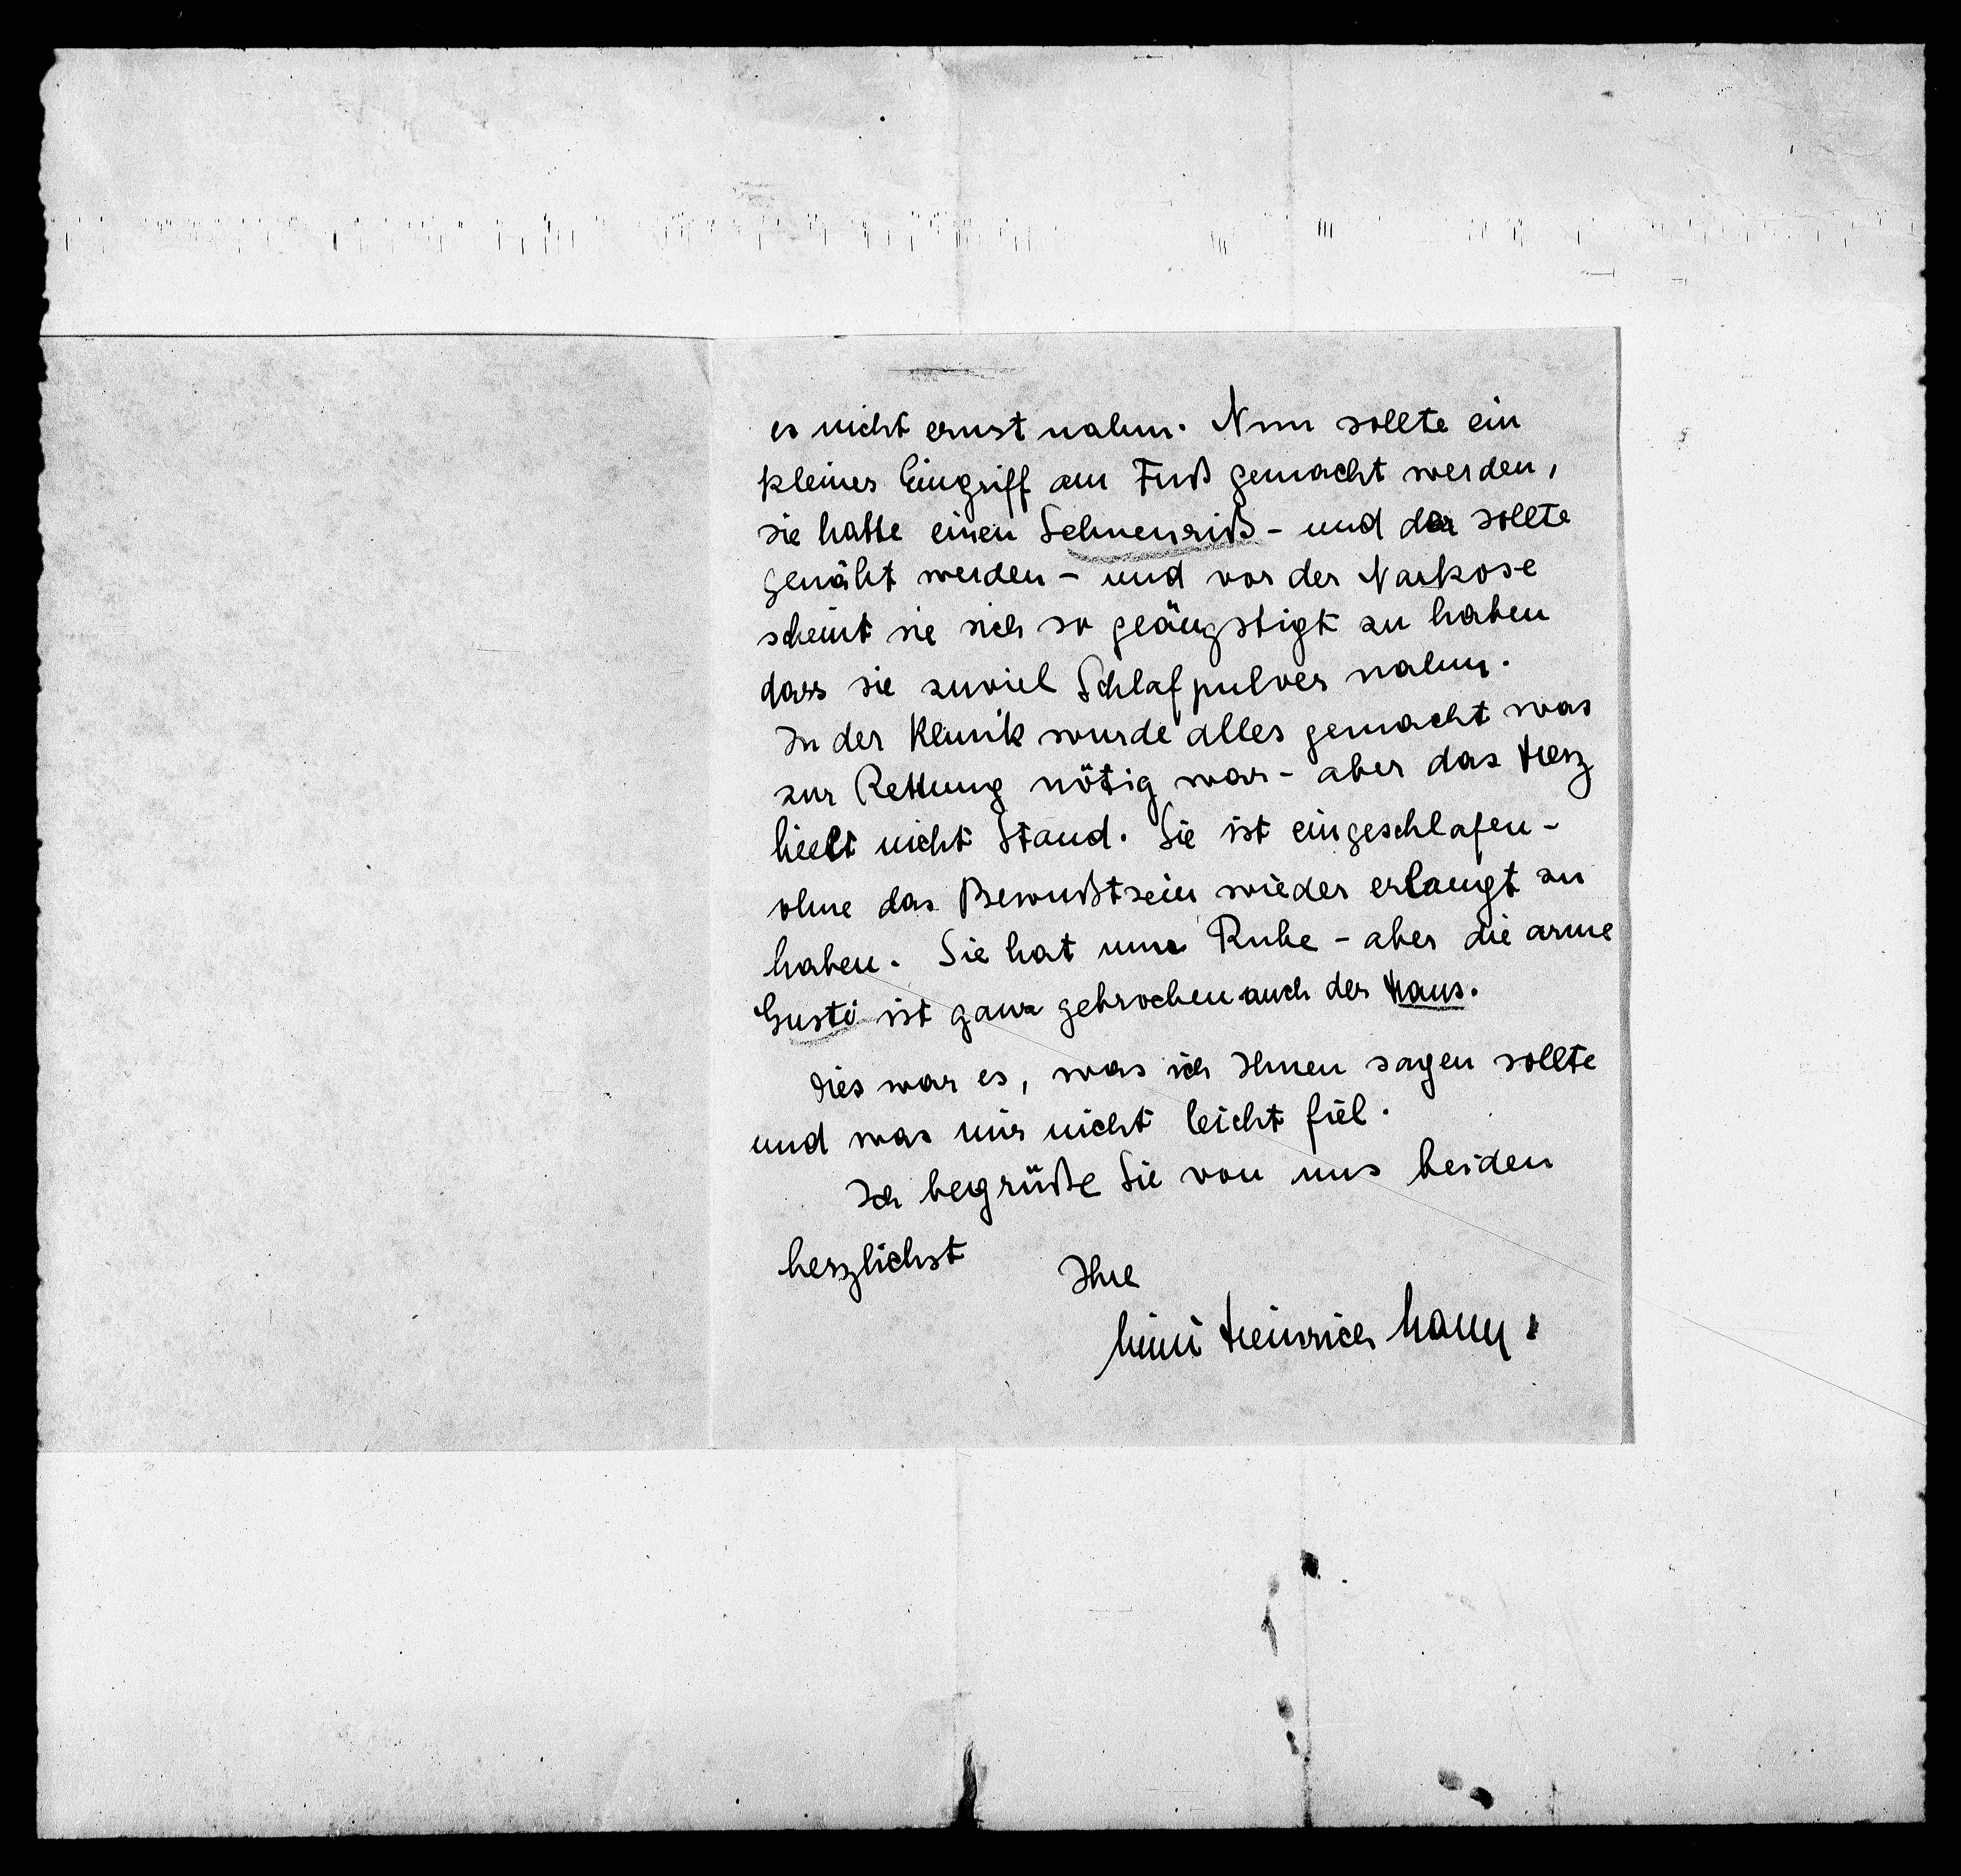 es nicht ernst nahm. Nun sollte ein
kleiner Eingriff am Fuß gemacht werden,
sie hatte einen Sehnenriß - und der sollte
genäht werden - und vor der Narkose
scheint sie sich so geängstigt zu haben
dass sie zuviel Schlafpulver nahm.
In der Klinik wurde alles gemacht was
zur Rettung nötig war - aber das Herz
hielt nicht Stand. Sie ist eingeschlafen -
ohne das Bewußtsein wieder erlangt zu
haben. Sie hat nun Ruhe - aber die arme
Gusti ist ganz gebrochen auch der Hans.
Dies war es, was ich Ihnen sagen sollte
und was mir nicht leicht fiel.
Ich begrüße Sie von uns beiden
herzlichst Ihre
Mimi Heinrich Mann.